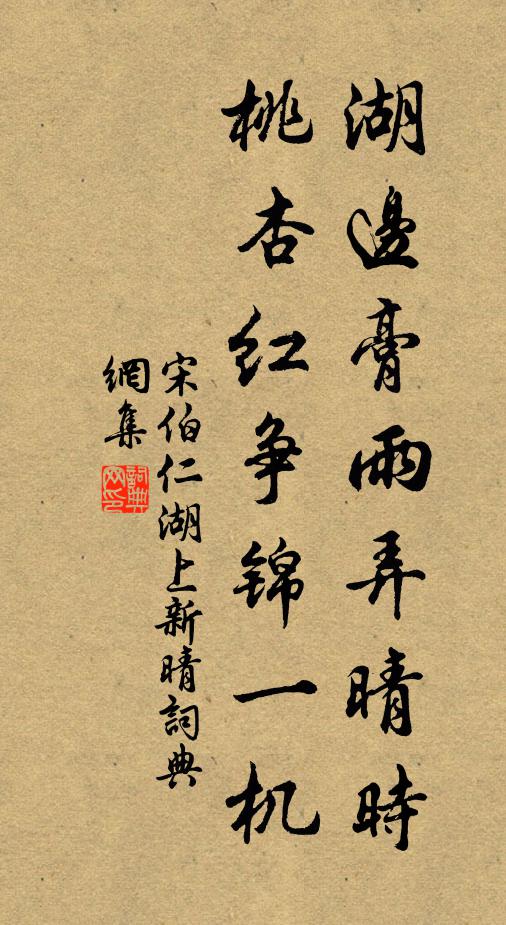 湖邊膏雨弄晴時
桃杏红争锦一机
宋伯仁湖上新晴詞典
網集
詞典
网印